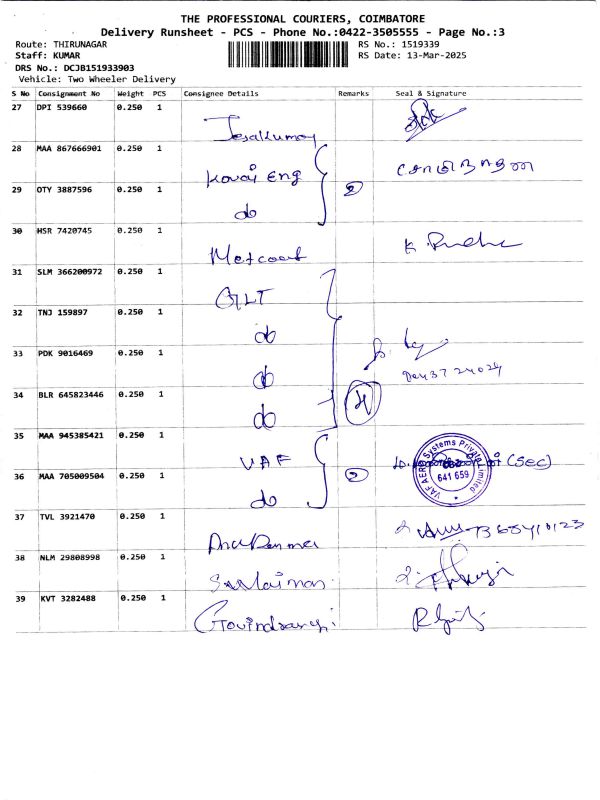 THE PROFESSIONAL COURIERS, COIMBATORE
Delivery Runsheet - PCS - Phone No.:0422-3505555 - Page No.:3
Route: THIRUNAGAR RS No.: 1519339
Staff: KUMAR RS Date: 13-Mar-2025
DRS No.: DCJB151933903
Vehicle: Two Wheeler Delivery
S No Consignment No Weight PCS Consignee Details Remarks Seal & Signature
27 DPI 539660 0.250 1
28 MAA 867666901 0.250 1 Kovai Eng
29 OTY 3887596 0.250 1 do 2
30 HSR 7420745 0.250 1 Metcoat
31 SLM 366200972 0.250 1
32 TNJ 159897 0.250 1 do
33 PDK 9016469 0.250 1 do
34 BLR 645823446 0.250 1 do 4
35 MAA 945385421 0.250 1 VAF (Sec)
36 MAA 705009504 0.250 1 do 2
VAF AERO Systems Private Limited
641 659
37 TVL 3921470 0.250 1
38 NLM 29808998 0.250 1
39 KVT 3282488 0.250 1